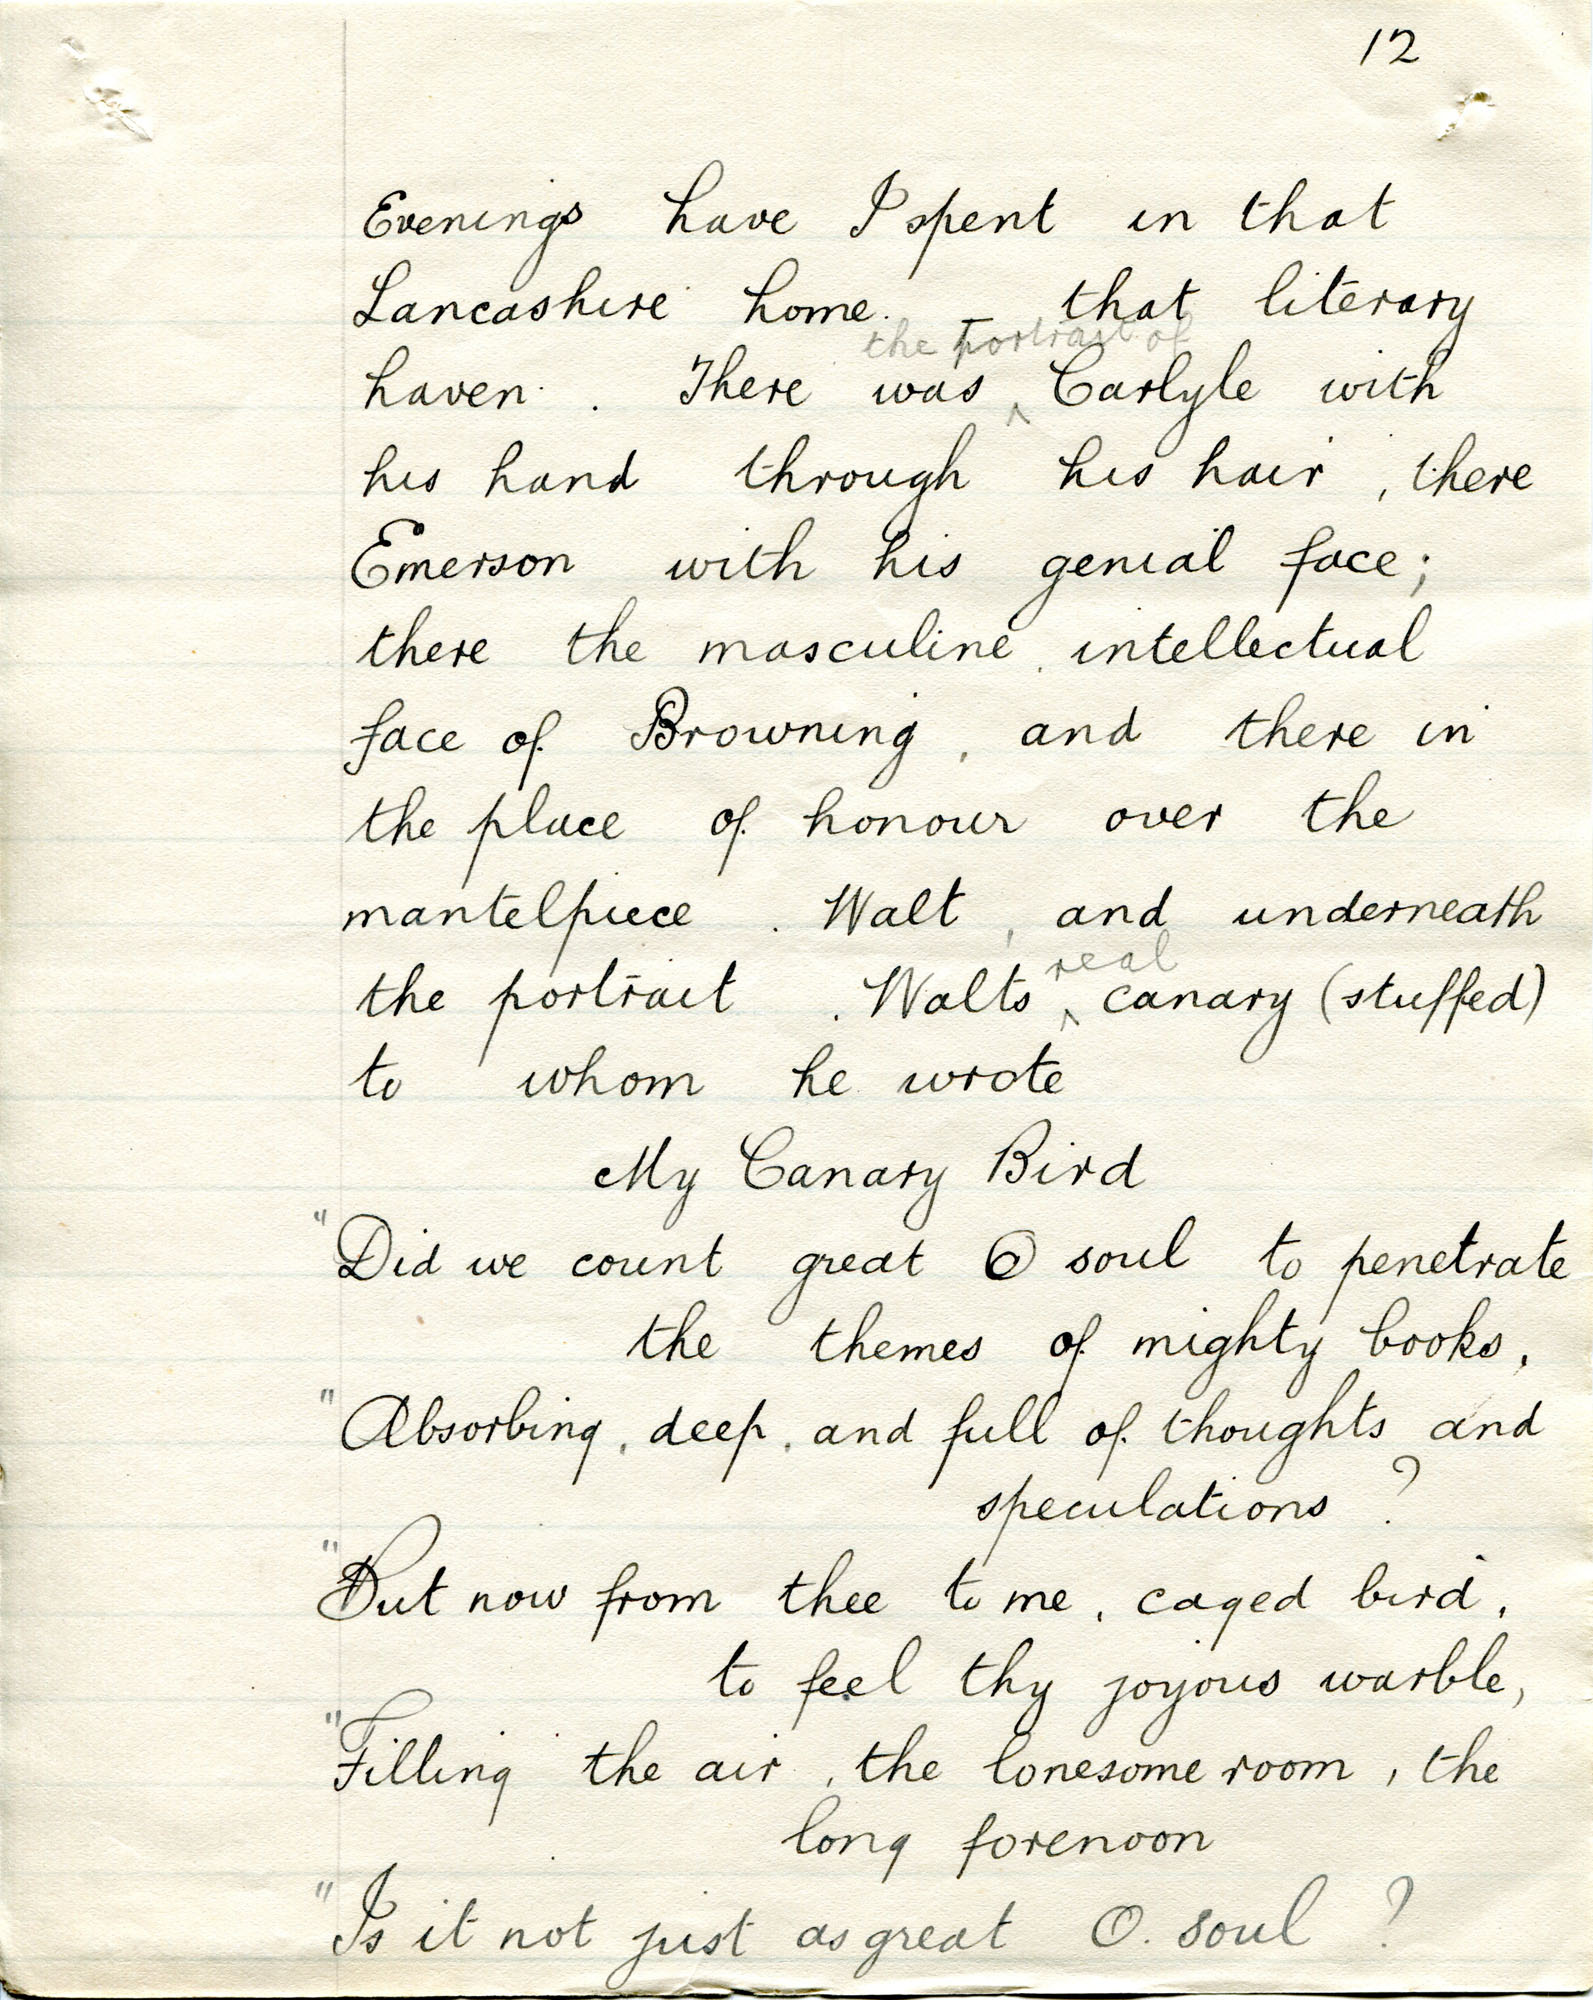 12
Evenings have I spent in that
Lancashire home. – that literary
the portrait of
haven . There was ^ Carlyle with
his hand through his hair , there
Emerson with his genial face ;
there the masculine , intellectual
face of Browning , and there in
the place of honour over the
mantelpiece . Walt , and underneath
real
the portrait . Walts ^ canary (stuffed)
to whom he wrote
My Canary Bird
"Did we count great O soul to penetrate
the themes of mighty books ,
"Absorbing , deep , and full of thoughts and
speculations ?
"But now from thee to me , caged bird ,
to feel thy joyous warble ,
"Filling the air , the lonesome room , the
long forenoon
"Is it not just as great O. soul ?